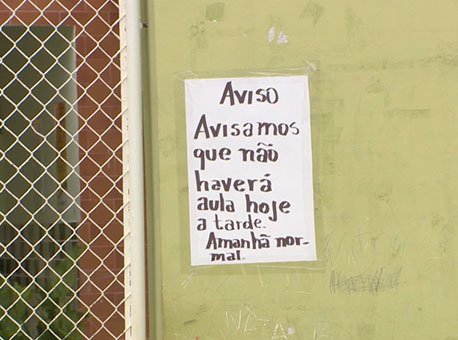 AVISO
Avisamos
que não
haverá
aula hoje
a tarde.
Amanhã nor-
mal.